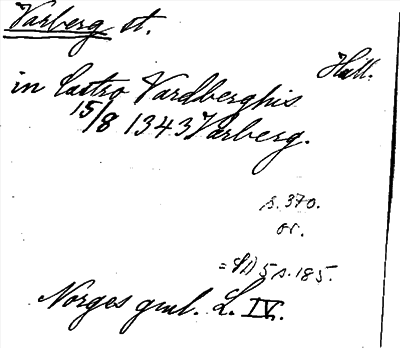 Varberg st.
Hall.
in Castro Vardberghis
15/8 1343 Varberg.
s. 370.
or.
= SD 5 s. 185.
Norges gml. L. IV.